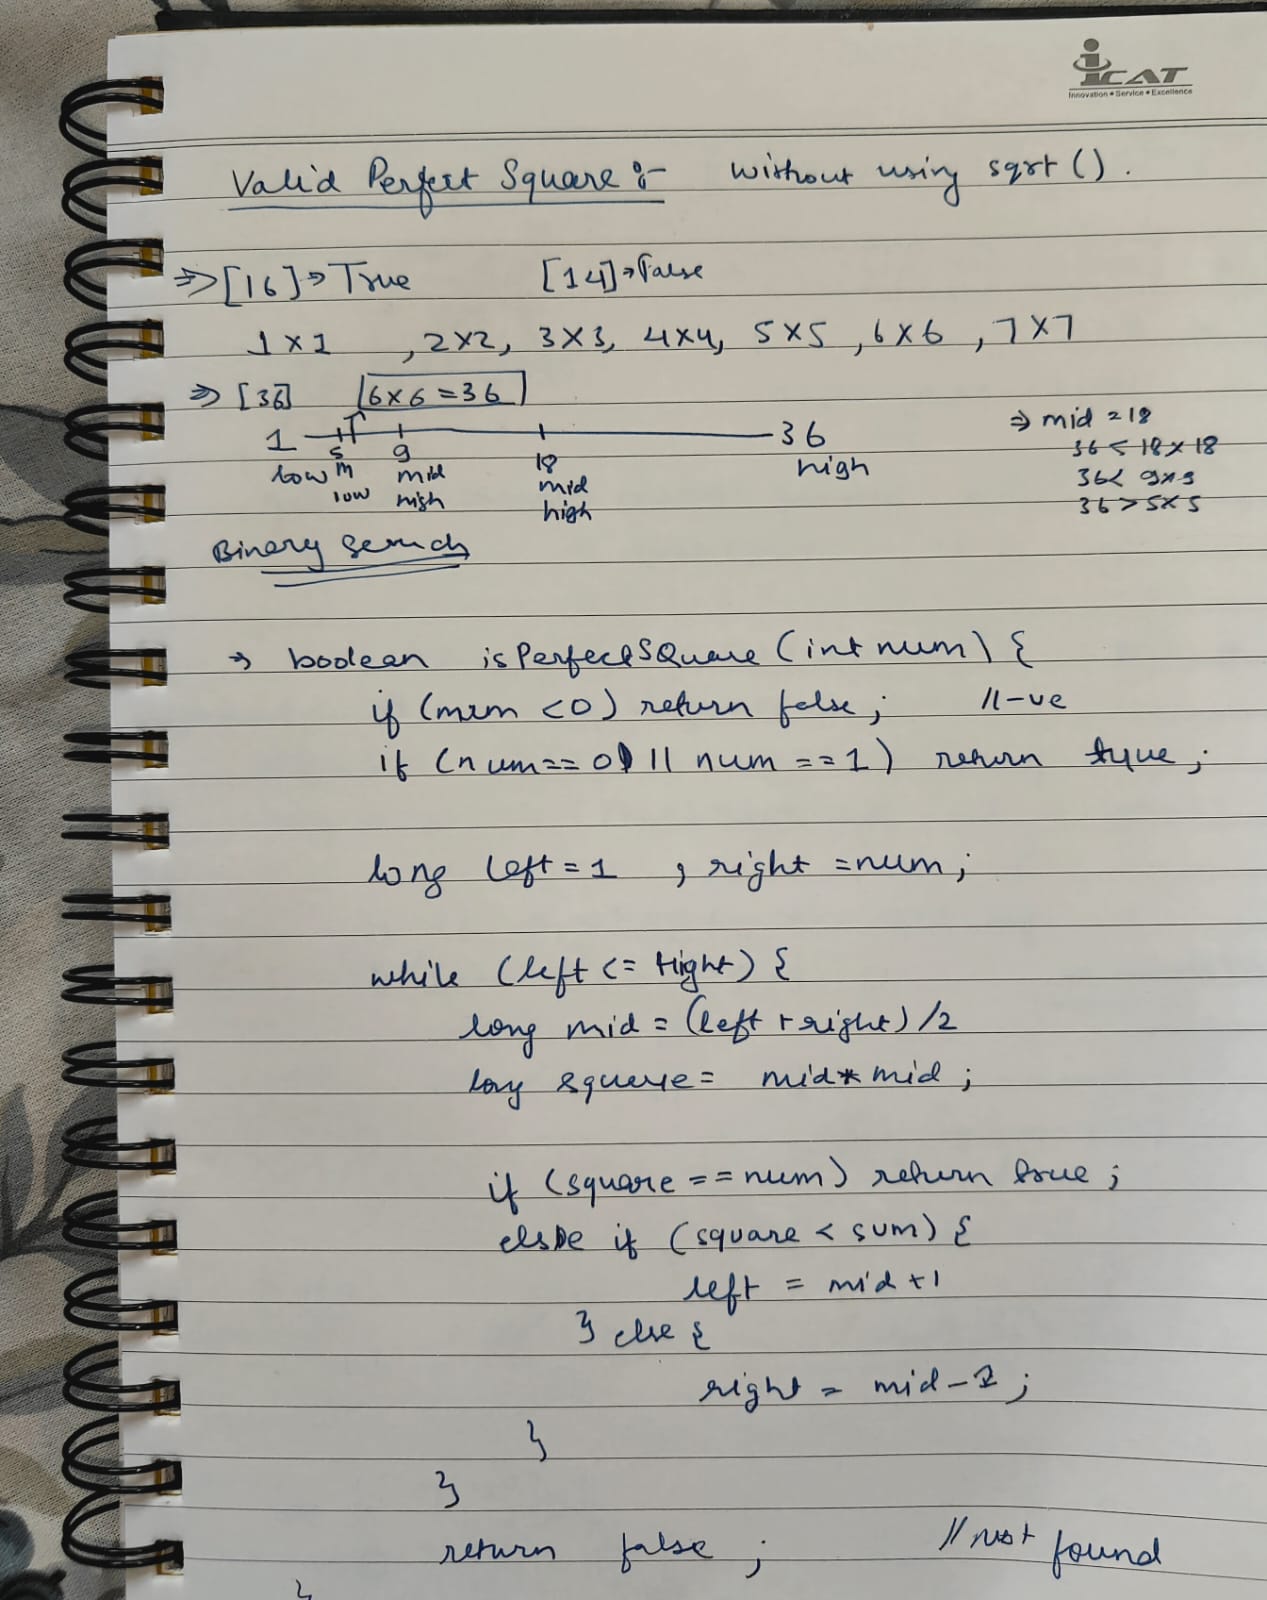 iCAT
Innovation • Service • Excellence
Valid Perfect Square :- without using sqrt ().
⇒ [16] ⇒ True [14] ⇒ False
1 x 1 , 2x2, 3x3, 4x4, 5x5 , 6x6 , 7x7
⇒ [36] 6x6 = 36
1 36 ⇒ mid = 18
5 9 18 36 < 18 x 18
low m mid mid high 36 < 9x9
low high high 36 > 5x5
Binary Search
→ boolean isPerfectSquare (int num) {
if (num < 0) return false; // -ve
if (num == 0 || num == 1) return true;
long left = 1 , right = num;
while (left <= right) {
long mid = (left + right) /2
long square = mid * mid ;
if (square == num) return true ;
else if (square < sum) {
left = mid + 1
} else {
right = mid - 1 ;
}
}
return false ; // not found
}